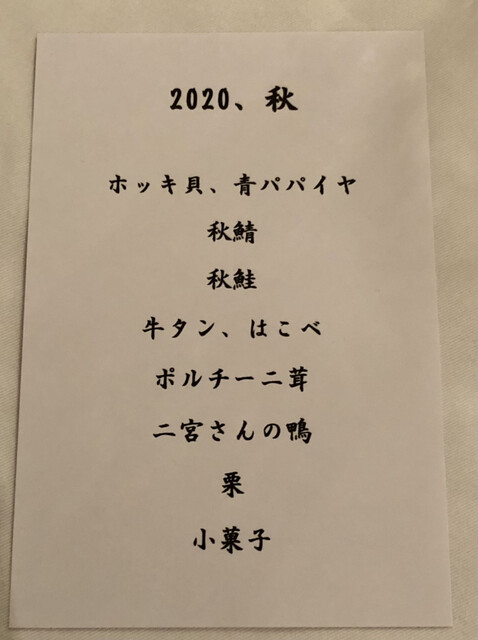 2020、秋
ホッキ貝、青パパイヤ
秋鯖
秋鮭
牛タン、はこべ
ポルチーニ茸
二宮さんの鴨
栗
小菓子